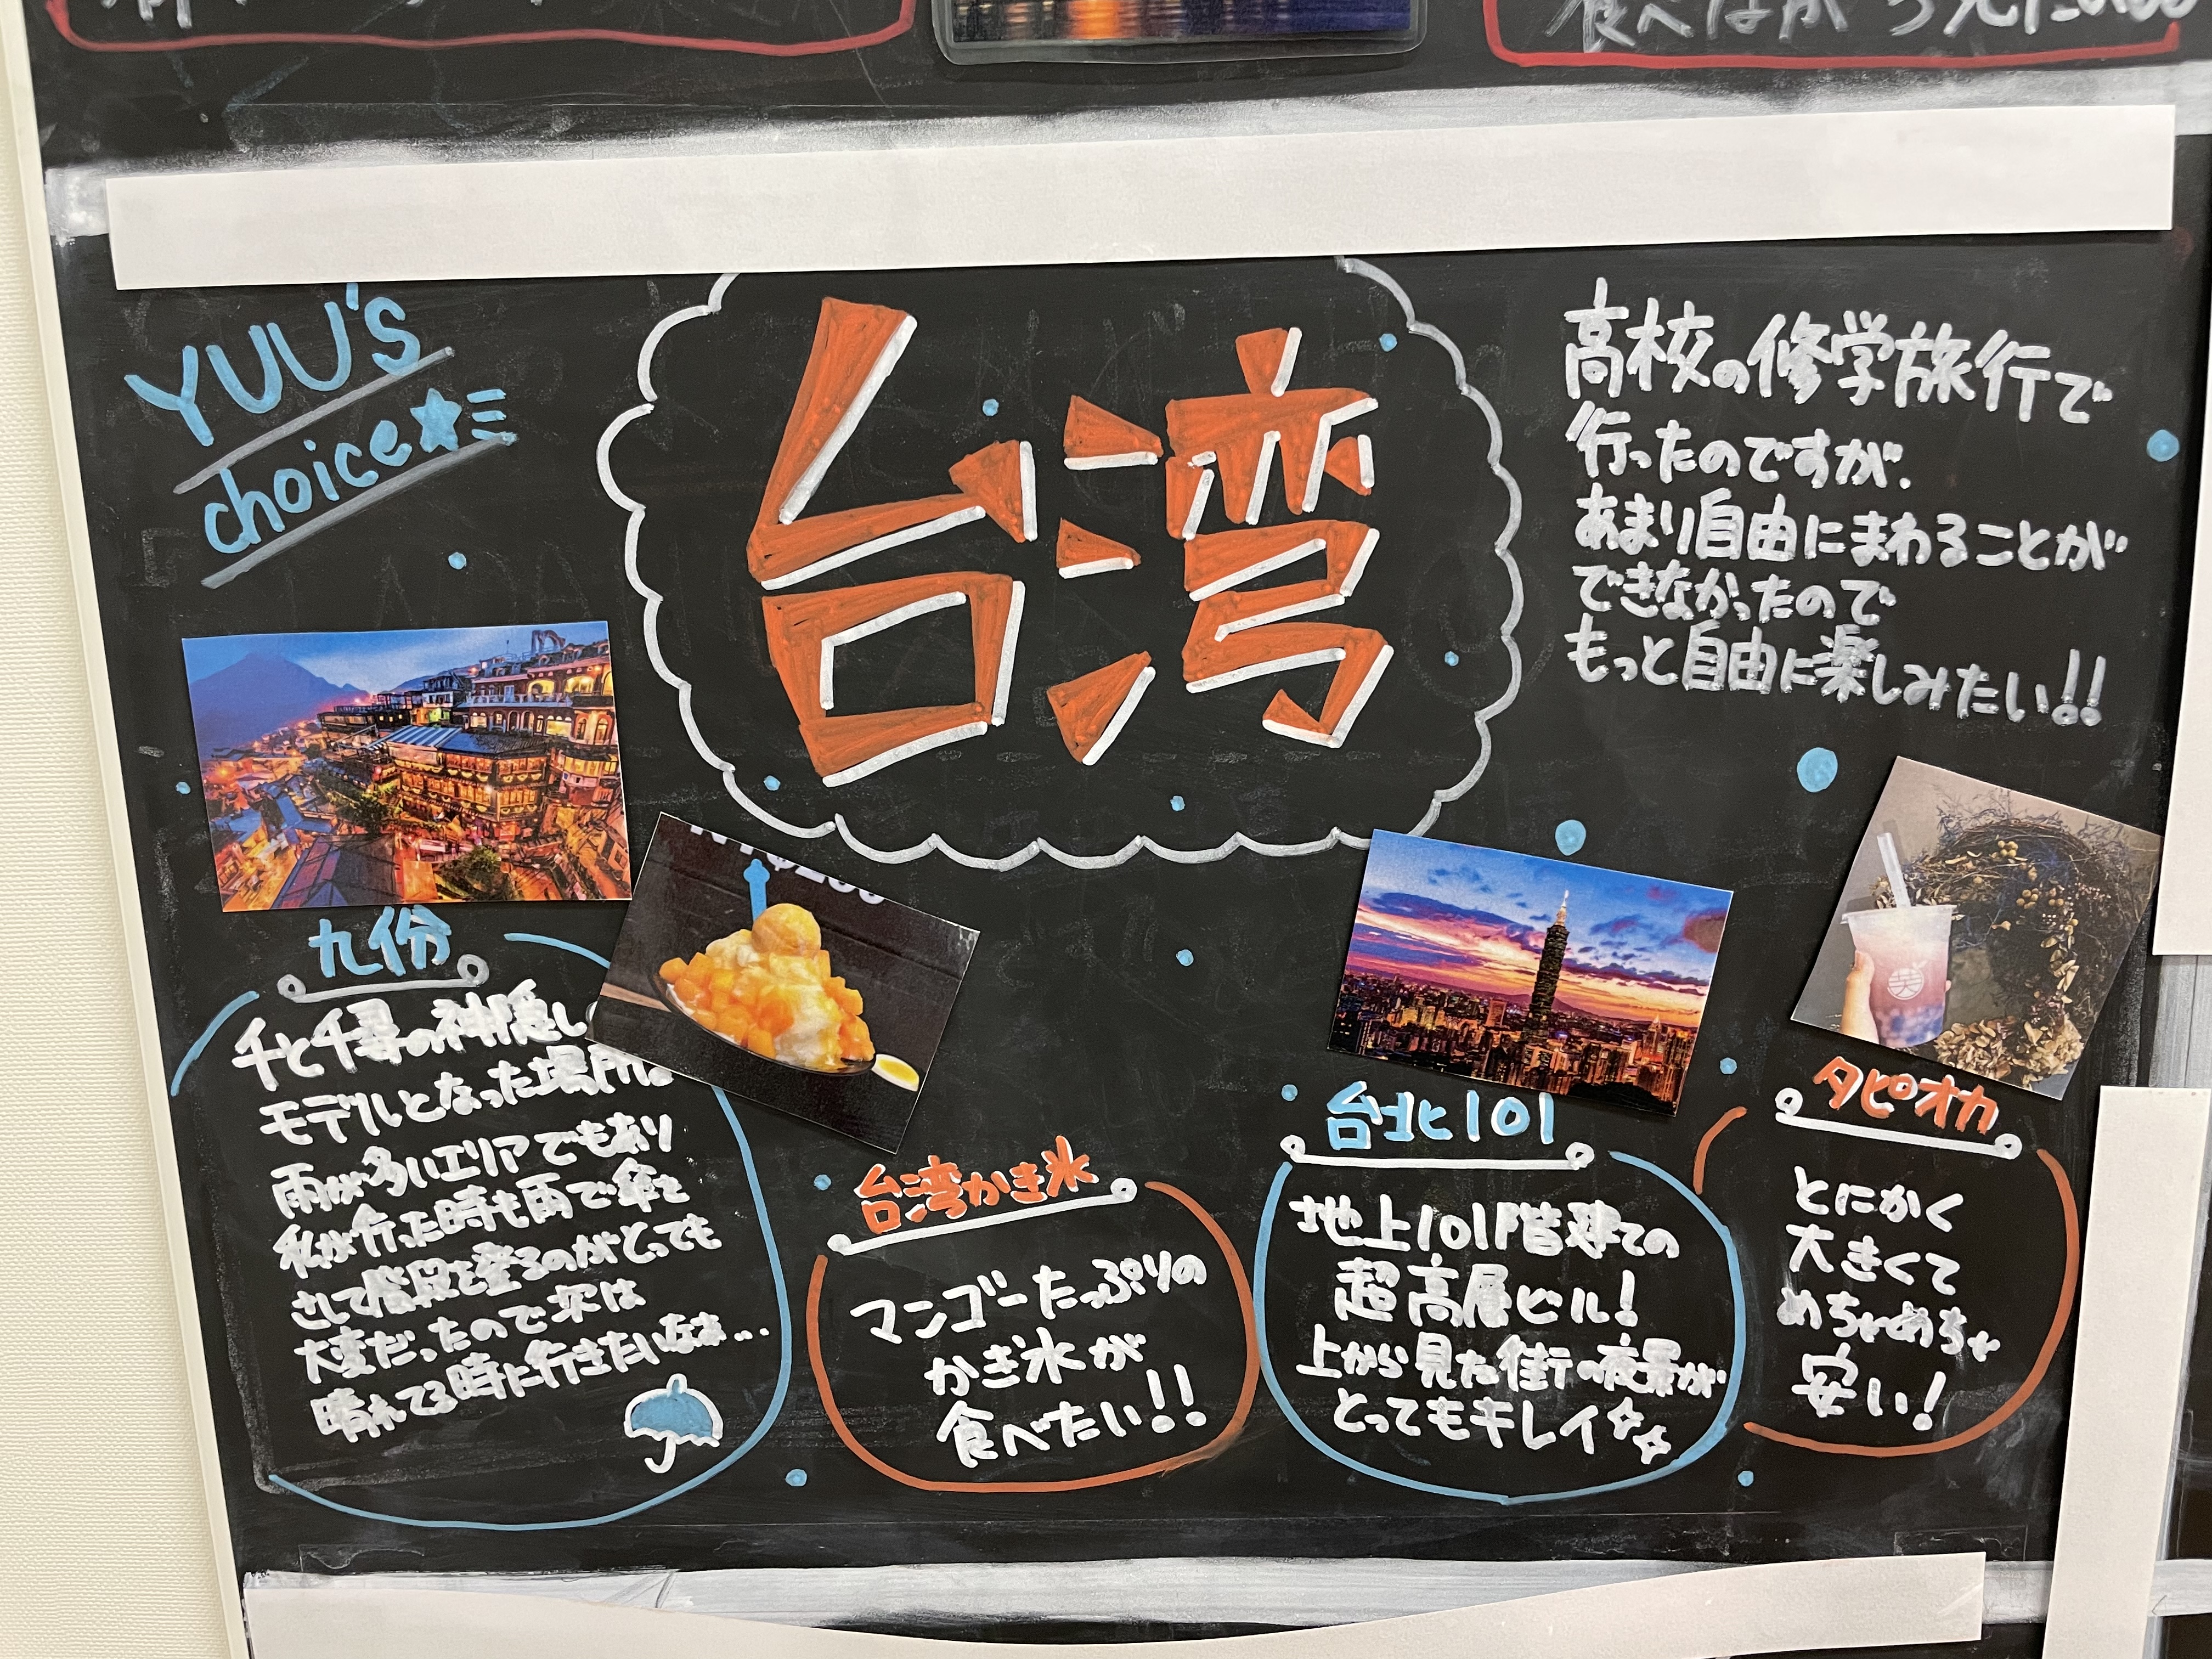 食べながら
YUU's
choice★
台湾
高校の修学旅行で
行ったのですが、
あまり自由にまわることが
できなかったので
もっと自由に楽しみたい!!
九份
千と千尋の神隠し
モデルとなった場所は
雨が多いエリアでもあり
私が行った時も雨で傘を
さして階段を登るのがとっても
大変だったので次は
晴れてる時に行きたいなぁ...
台湾かき氷
マンゴーたっぷりの
かき氷が
食べたい!!
台北101
地上101階建ての
超高層ビル!
上から見た街の夜景が
とってもキレイ
タピオカ
とにかく
大きくて
めちゃめちゃ
安い!